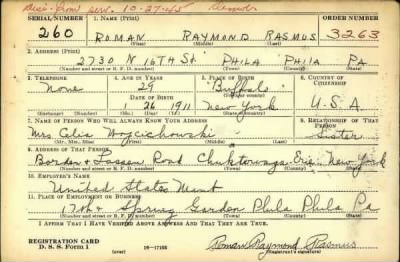 Disc. from serv. 10-27-45
SERIAL NUMBER 1. NAME (Print) ORDER NUMBER
260 ROMAN RAYMOND RASMUS 3263
(First) (Middle) (Last)
2. ADDRESS (Print)
2730 N 16TH St. PHILA PHILA PA
(Number and street or R. F. D. number) (Town) (County) (State)
3. TELEPHONE 4. AGE IN YEARS 5. PLACE OF BIRTH 6. COUNTRY OF CITIZENSHIP
None 29 Buffalo
(Town or county)
DATE OF BIRTH
1 26 1911 New York U.S.A
(Exchange) (Number) (Mo.) (Day) (Yr.) (State or country)
7. NAME OF PERSON WHO WILL ALWAYS KNOW YOUR ADDRESS 8. RELATIONSHIP OF THAT PERSON
Mrs Celia Wojcichowski Sister
(Mr., Mrs., Miss) (First) (Middle) (Last)
9. ADDRESS OF THAT PERSON
Borden & Lossen Road Chuktowaga Erie New York
(Number and street or R. F. D. number) (Town) (County) (State)
10. EMPLOYER'S NAME
United States Mint
11. PLACE OF EMPLOYMENT OR BUSINESS
17th & Spring Garden Phila Phila Pa
(Number and street or R. F. D. number) (Town) (County) (State)
I AFFIRM THAT I HAVE VERIFIED ABOVE ANSWERS AND THAT THEY ARE TRUE.
REGISTRATION CARD
D. S. S. Form 1 (over) 16—17105 Roman Raymond Rasmus
(Registrant's signature)